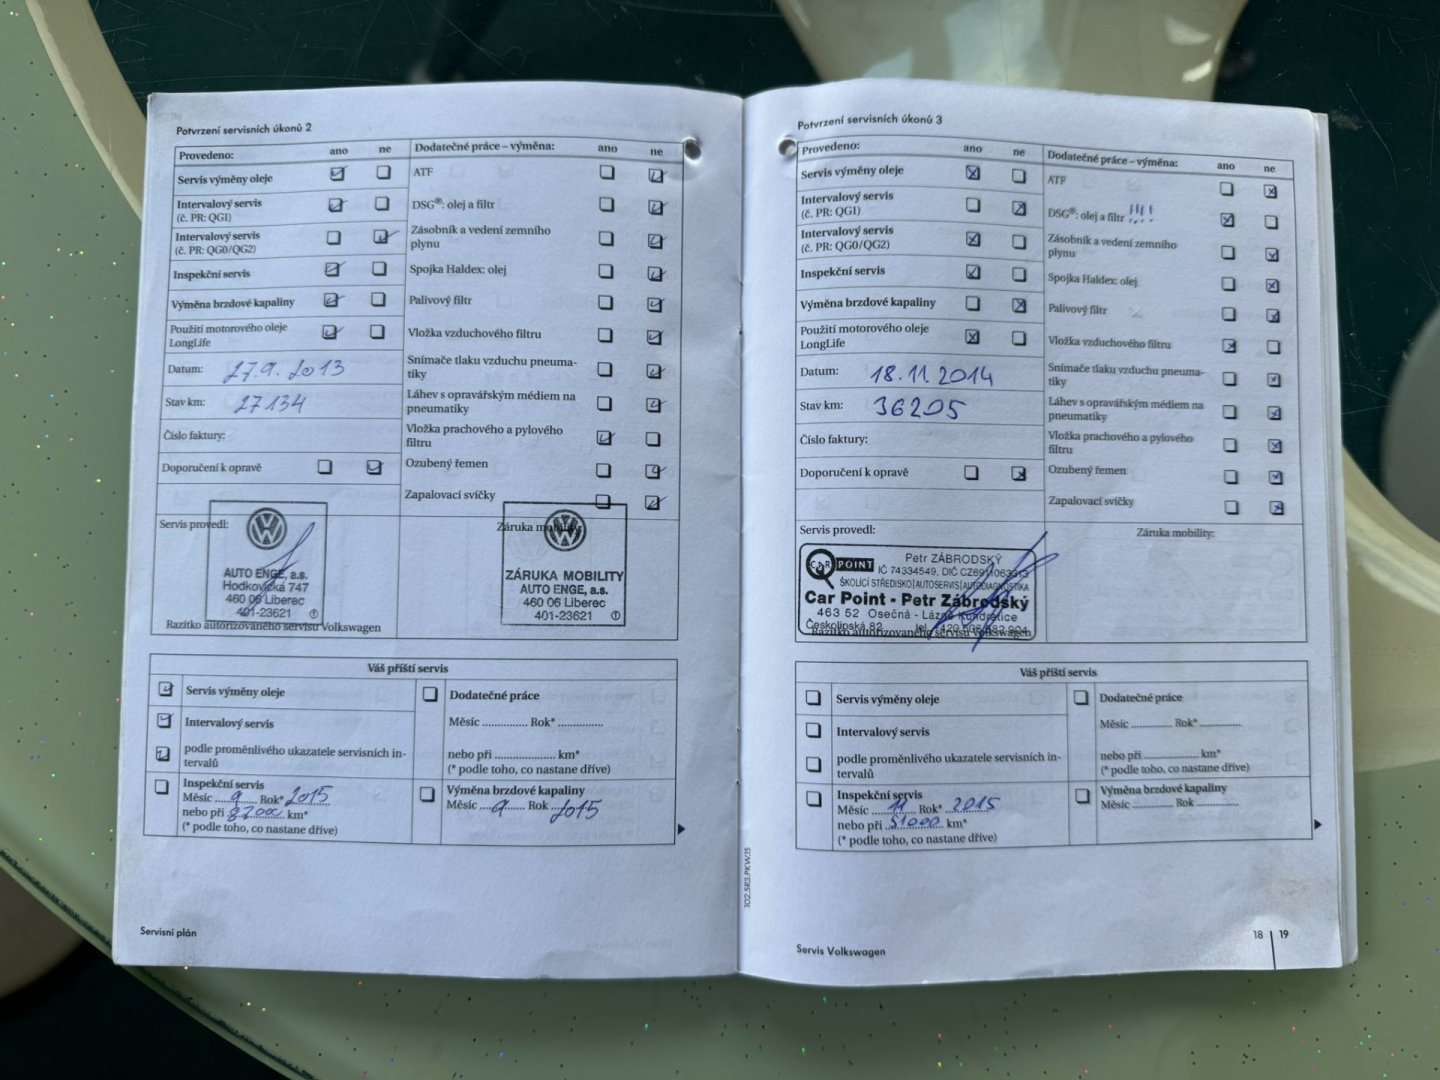 Potvrzení servisních úkonů 2
Provedeno: ano ne
Servis výměny oleje
Intervalový servis
(č. PR: QG1)
Intervalový servis
(č. PR: QG0/QG2)
Inspekční servis
Výměna brzdové kapaliny
Použití motorového oleje
LongLife
Datum: 27.9.2013
Stav km: 27134
Číslo faktury:
Doporučení k opravě
Dodatečné práce – výměna: ano ne
ATF
DSG®: olej a filtr
Zásobník a vedení zemního
plynu
Spojka Haldex: olej
Palivový filtr
Vložka vzduchového filtru
Snímače tlaku vzduchu pneuma-
tiky
Láhev s opravářským médiem na
pneumatiky
Vložka prachového a pylového
filtru
Ozubený řemen
Zapalovací svíčky
Servis provedl:
AUTO ENGE, a.s.
Hodkovická 747
460 06 Liberec
401-23621 ①
Razítko autorizovaného servisu Volkswagen
Záruka mobility:
ZÁRUKA MOBILITY
AUTO ENGE, a.s.
460 06 Liberec
401-23621 ①
Váš příští servis
Servis výměny oleje
Intervalový servis
podle proměnlivého ukazatele servisních in-
tervalů
Inspekční servis
Měsíc 9 Rok* 2015
nebo při km*
(* podle toho, co nastane dříve)
Dodatečné práce
Měsíc ............... Rok* ...............
nebo při .................... km*
(* podle toho, co nastane dříve)
Výměna brzdové kapaliny
Měsíc 9 Rok 2015
Servisní plán
Potvrzení servisních úkonů 3
Provedeno: ano ne
Servis výměny oleje
Intervalový servis
(č. PR: QG1)
Intervalový servis
(č. PR: QG0/QG2)
Inspekční servis
Výměna brzdové kapaliny
Použití motorového oleje
LongLife
Datum: 18.11.2014
Stav km: 36205
Číslo faktury:
Doporučení k opravě
Dodatečné práce – výměna: ano ne
ATF
DSG®: olej a filtr !!!!
Zásobník a vedení zemního
plynu
Spojka Haldex: olej
Palivový filtr
Vložka vzduchového filtru
Snímače tlaku vzduchu pneuma-
tiky
Láhev s opravářským médiem na
pneumatiky
Vložka prachového a pylového
filtru
Ozubený řemen
Zapalovací svíčky
Servis provedl:
CAR POINT Petr ZÁBRODSKÝ
IČ 74334549, DIČ
ŠKOLÍCÍ STŘEDISKO|AUTOSERVIS|AUTODIAGNOSTIKA
Car Point - Petr Zábrodský
463 52 Osečná - Lázně Kundratice
Českolipská 82 tel.
Razítko autorizovaného servisu Volkswagen
Záruka mobility:
Váš příští servis
Servis výměny oleje
Intervalový servis
podle proměnlivého ukazatele servisních in-
tervalů
Inspekční servis
Měsíc 11 Rok* 2015
nebo při 51000 km*
(* podle toho, co nastane dříve)
Dodatečné práce
Měsíc ............... Rok* ...............
nebo při .................... km*
(* podle toho, co nastane dříve)
Výměna brzdové kapaliny
Měsíc ............... Rok ...............
102.5R3.PKW.15
Servis Volkswagen
18 | 19